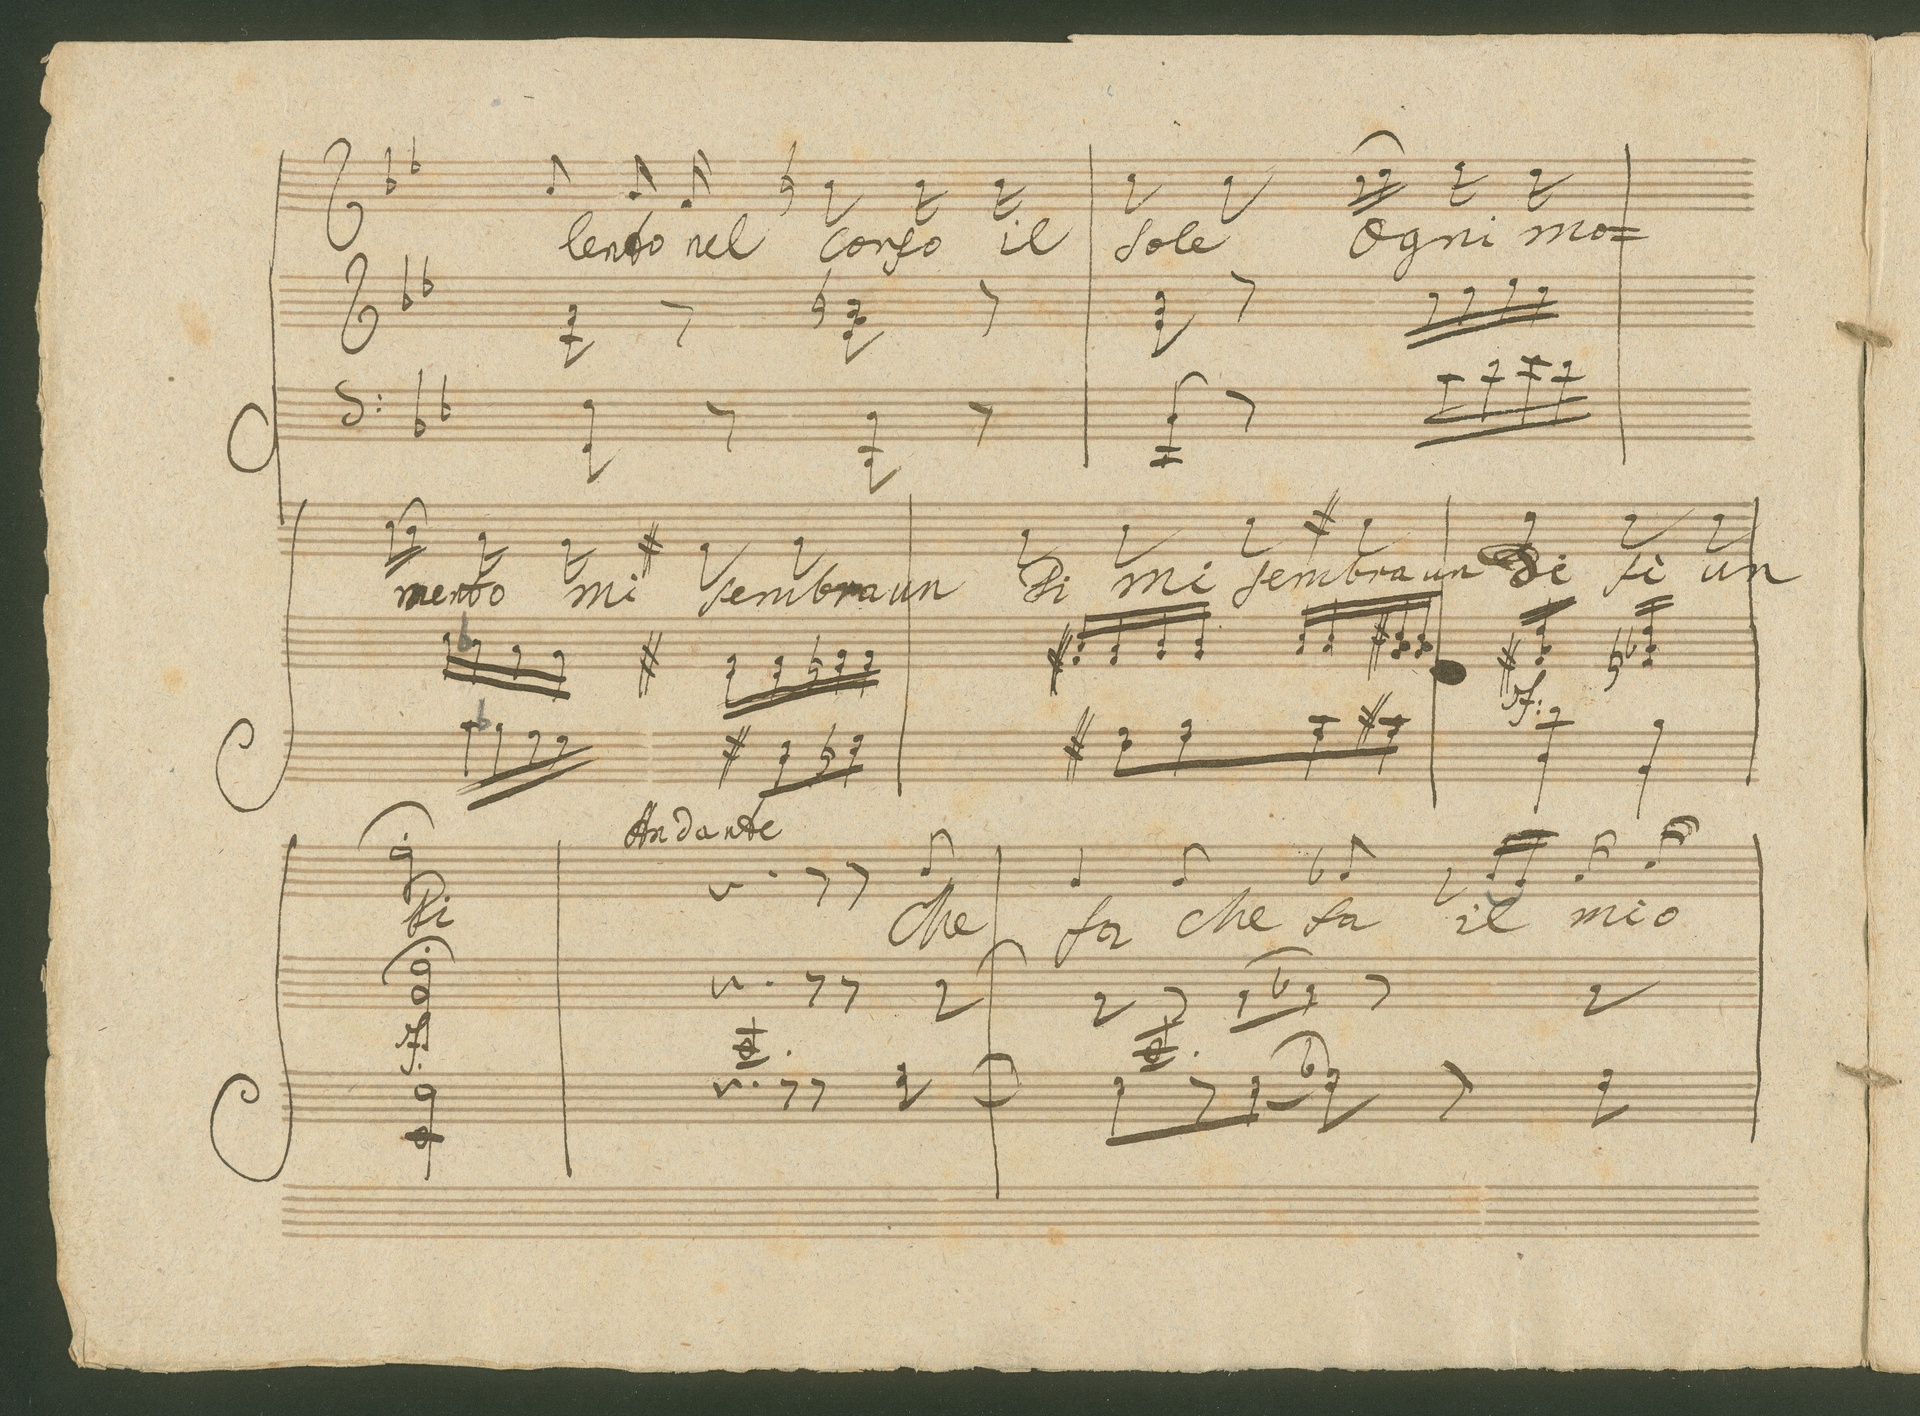 lento nel corso il sole Ogni mo=
mento mi sembra un Di mi sembra un Di sì un
sf:
Andante
Di che fa che fa il mio
sf: